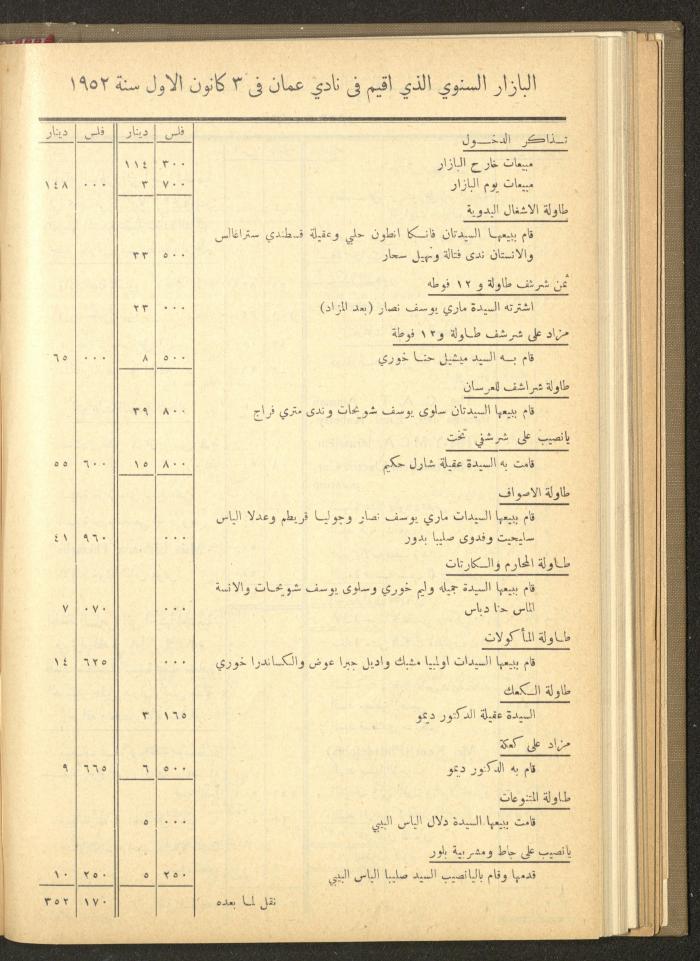 البازار السنوي الذي اقيم في نادي عمان في ٣ كانون الاول سنة ١٩٥٢
فلس دينار فلس دينار
تذاكر الدخول
مبيعات خارج البازار ٣٠٠ ١١٤
مبيعات يوم البازار ٧٠٠ ٣ ٠٠٠ ١٤٨
طاولة الاشغال اليدوية
قام ببيعها السيدتان فانكا انطون حلبي وعقيلة قسطندي ستراغالس
والانستان ندى فتالة ونهيل سحار ٥٠٠ ٣٣
ثمن شرشف طاولة و ١٢ فوطه
اشترته السيدة ماري يوسف نصار (بعد المزاد) ٠٠٠ ٢٣
مزاد على شرشف طاولة و١٢ فوطة
قام به السيد ميشيل حنا خوري ٥٠٠ ٨ ٠٠٠ ٦٥
طاولة شراشف للعرسان
قام ببيعها السيدتان سلوى يوسف شويحات وندى متري فراج ٨٠٠ ٣٩
يانصيب على شرشفي تخت
قامت به السيدة عقيلة شارل حكيم ٨٠٠ ١٥ ٦٠٠ ٥٥
طاولة الاصواف
قام ببيعها السيدات ماري يوسف نصار وجوليا قريطم وعدلا الياس
سايحيت وفدوى صليبا بدور ٠٠٠ ٩٦٠ ٤١
طاولة المحارم والسكارتات
قام ببيعها السيدة جميله وليم خوري وسلوى يوسف شويحات والانسة
الماس حنا دباس ٠٠٠ ٠٧٠ ٧
طاولة المأكولات
قام ببيعها السيدات اولمبيا مشبك واديل جبرا عوض والكساندرا خوري ٠٠٠ ٦٢٥ ١٤
طاولة الكعك
السيدة عقيلة الدكتور ديمو ١٦٥ ٣
مزاد على كعكة
قام به الدكتور ديمو ٥٠٠ ٦ ٦٦٥ ٩
طاولة المتنوعات
قامت ببيعها السيدة دلال الياس البيبي ٠٠٠ ٥
يانصيب على جاط ومشربية بلور
قدمها وقام باليانصيب السيد صليبا الياس البيبي ٢٥٠ ٥ ٢٥٠ ١٠
نقل لما بعده ١٧٠ ٣٥٢